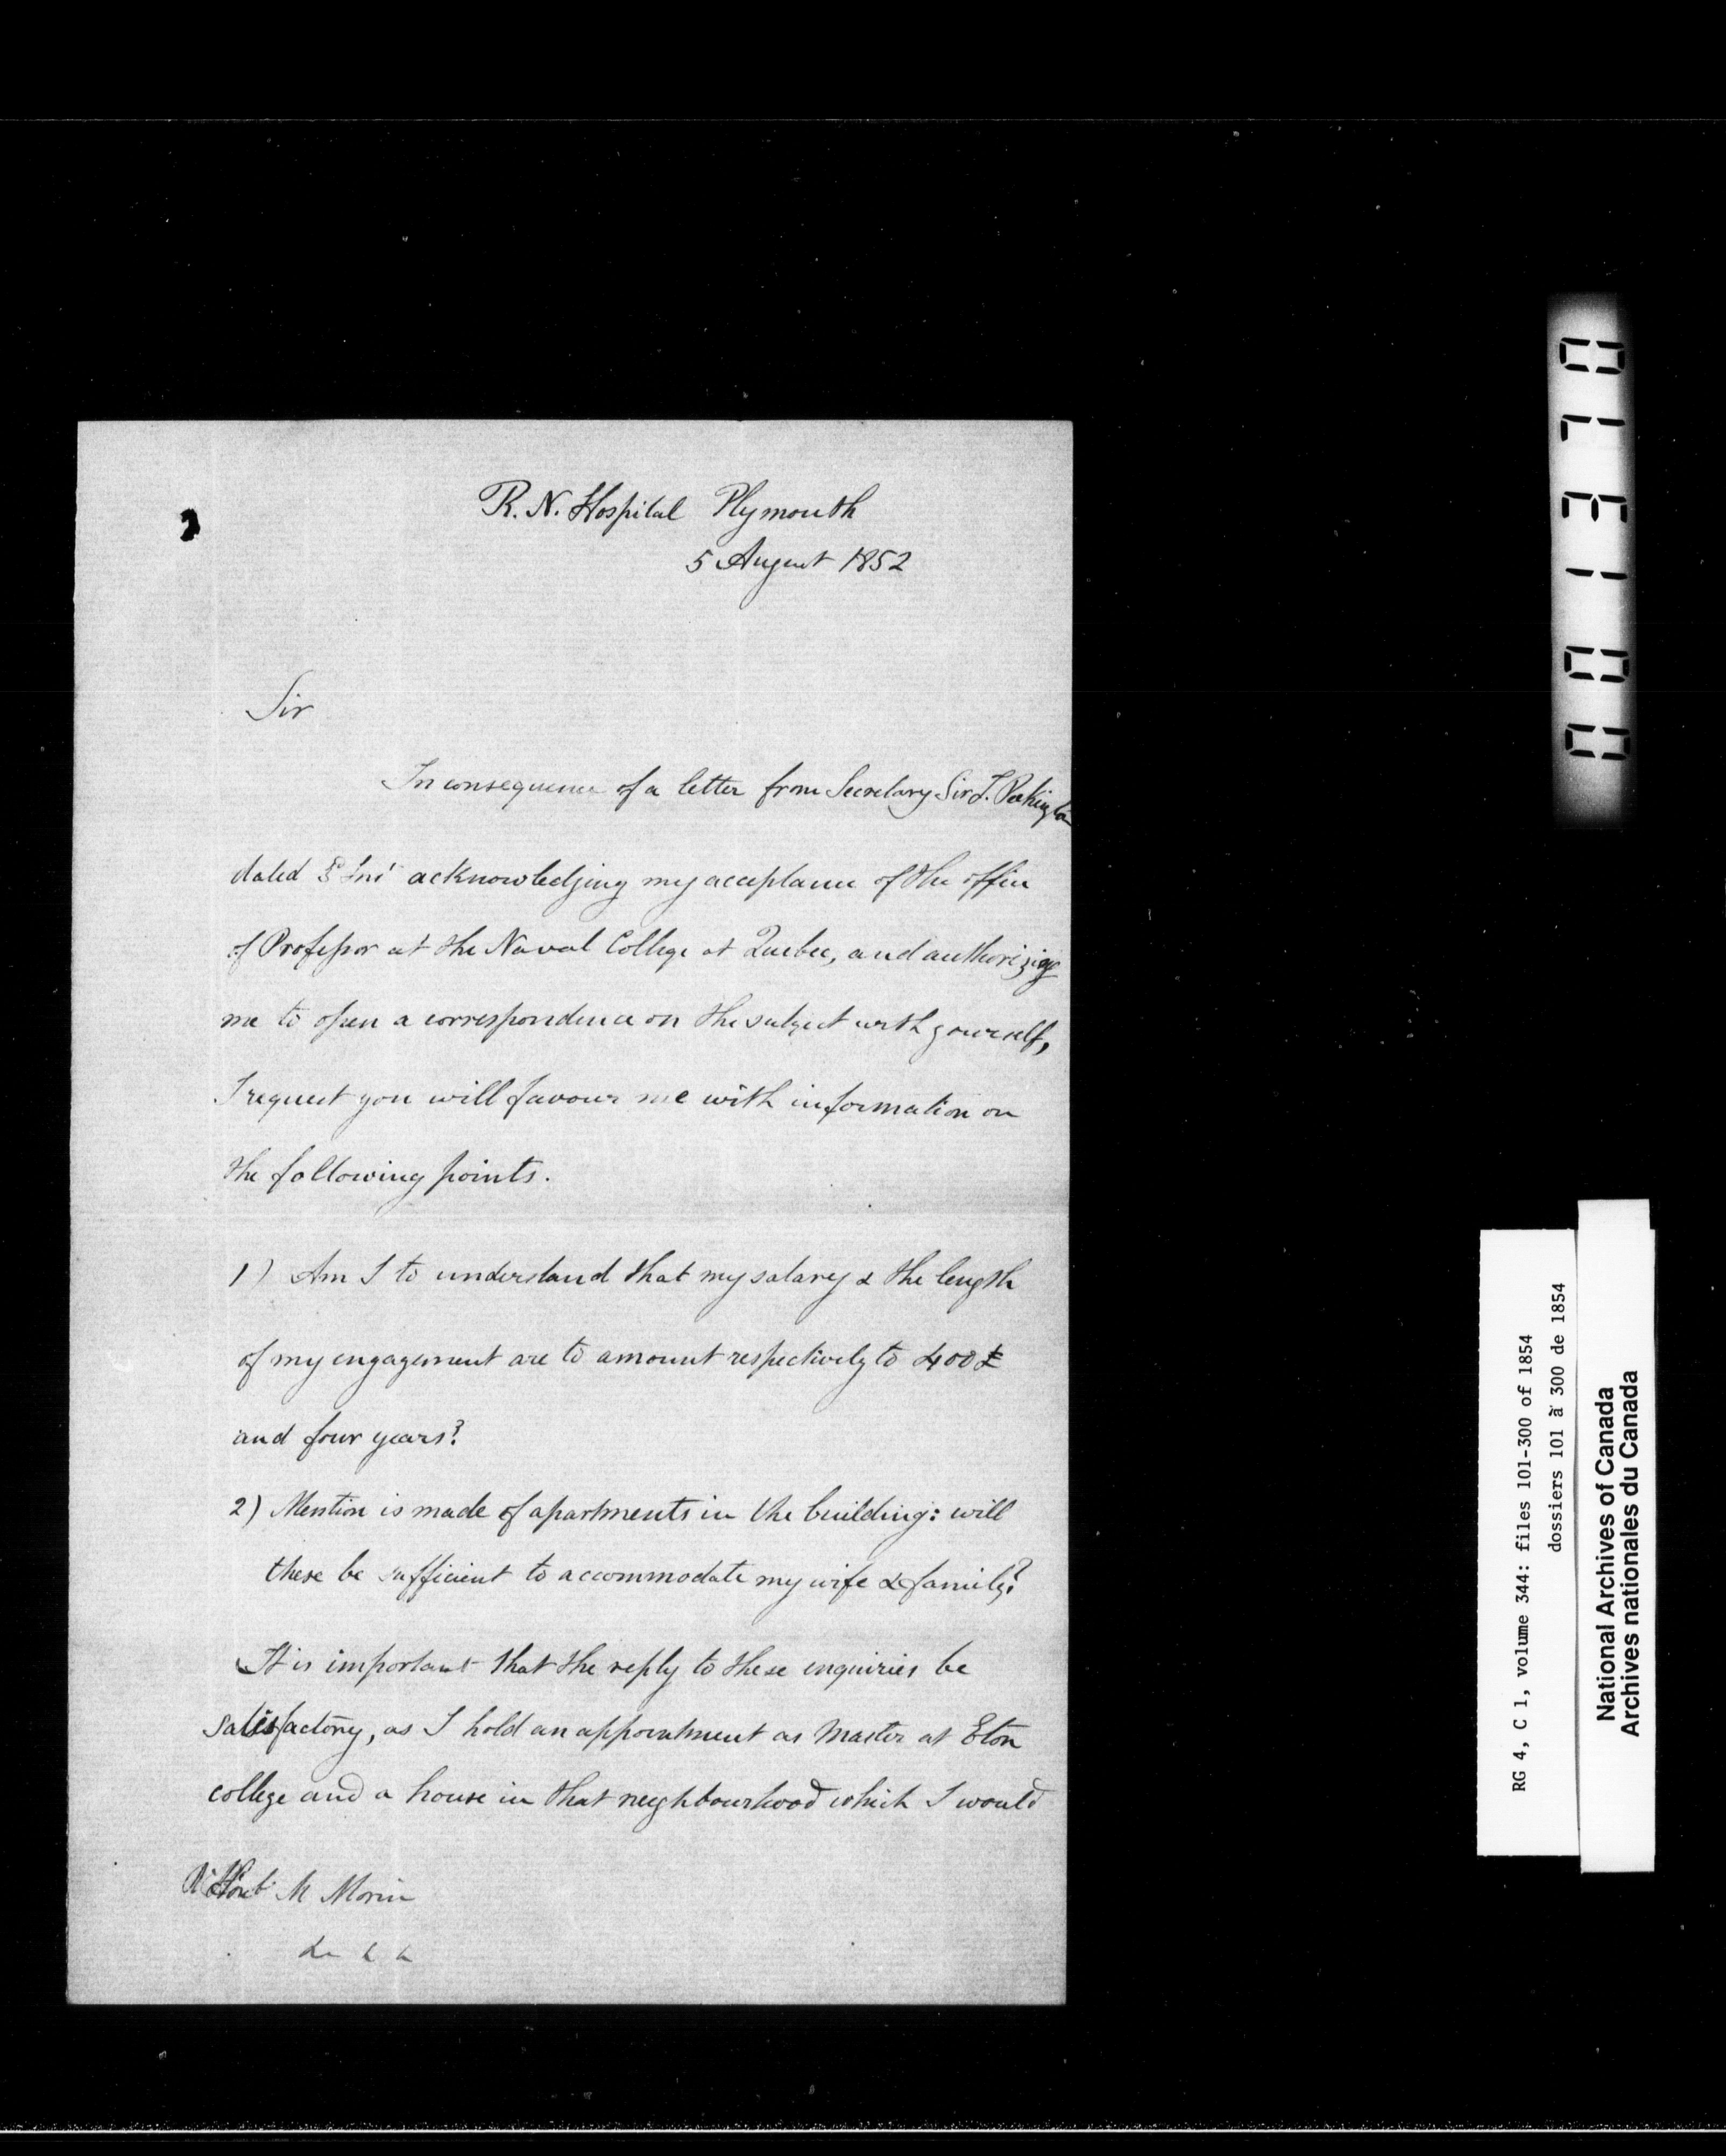 R. N. Hospital Plymouth
5 August 1852
Sir
In consequence of a letter from Secretary Sir J. Pakington
dated 3 Inst acknowledging my acceptance of the office
of Professor at the Naval College at Quebec, and authorizing
me to open a correspondence on the subject with yourself,
I request you will favour me with information on
the following points.
1) Am I to understand that my salary & the length
of my engagement are to amount respectively to 400£
and four years?
2) Mention is made of apartments in the building: will
these be sufficient to accommodate my wife & family?
It is important that the reply to these enquiries be
satisfactory, as I hold an appointment as Master at Eton
college and a house in that neighbourhood which I would
M Morin
&c &c &c
001370
RG 4, C 1, volume 344: files 101-300 of 1854
dossiers 101 à 300 de 1854
National Archives of Canada
Archives nationales du Canada